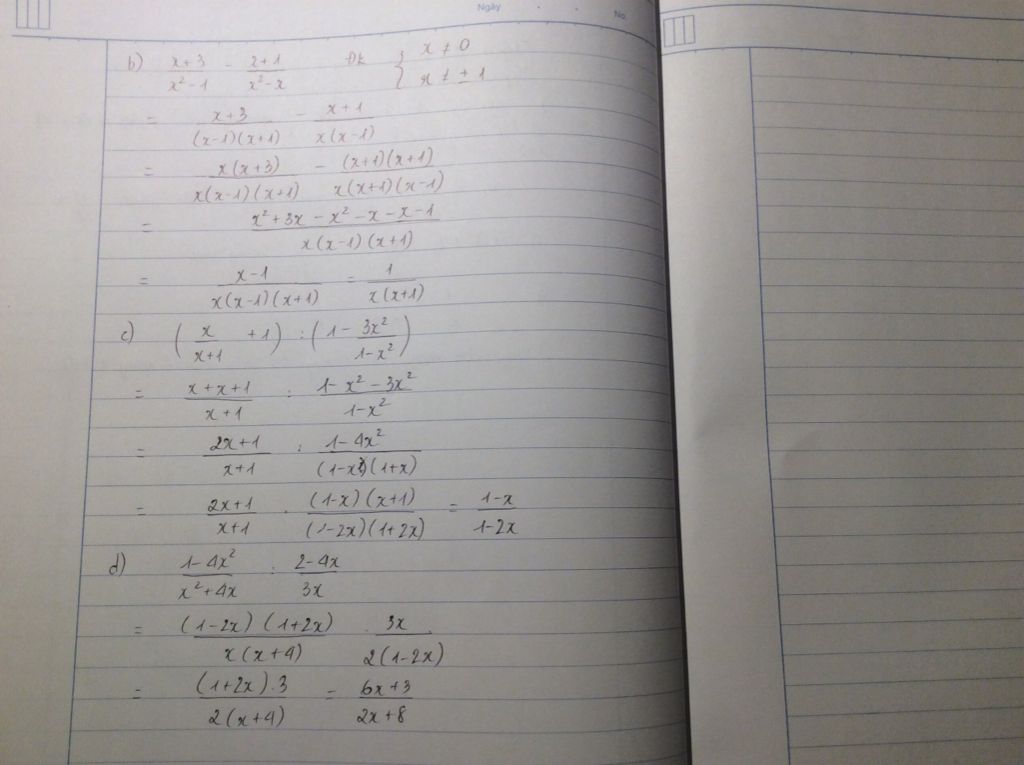 Ngày
No.
b) \frac{x+3}{x^2-1} - \frac{2+1}{x^2-x} ĐK { x ≠ 0
x ≠ ± 1
= \frac{x+3}{(x-1)(x+1)} - \frac{x+1}{x(x-1)}
= \frac{x(x+3)}{x(x-1)(x+1)} - \frac{(x+1)(x+1)}{x(x+1)(x-1)}
= \frac{x^2+3x-x^2-x-x-1}{x(x-1)(x+1)}
= \frac{x-1}{x(x-1)(x+1)} = \frac{1}{x(x+1)}
c) (\frac{x}{x+1} + 1) : (1 - \frac{3x^2}{1-x^2})
= \frac{x+x+1}{x+1} : \frac{1-x^2-3x^2}{1-x^2}
= \frac{2x+1}{x+1} : \frac{1-4x^2}{(1-x)(1+x)}
= \frac{2x+1}{x+1} . \frac{(1-x)(x+1)}{(1-2x)(1+2x)} = \frac{1-x}{1-2x}
d) \frac{1-4x^2}{x^2+4x} : \frac{2-4x}{3x}
= \frac{(1-2x)(1+2x)}{x(x+4)} . \frac{3x}{2(1-2x)}
= \frac{(1+2x).3}{2(x+4)} = \frac{6x+3}{2x+8}